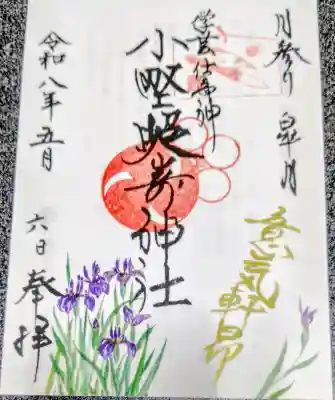 月参り 皐月
意気軒昂
学芸仕事神
小野照崎神社
令和八年五月
六日 奉拝